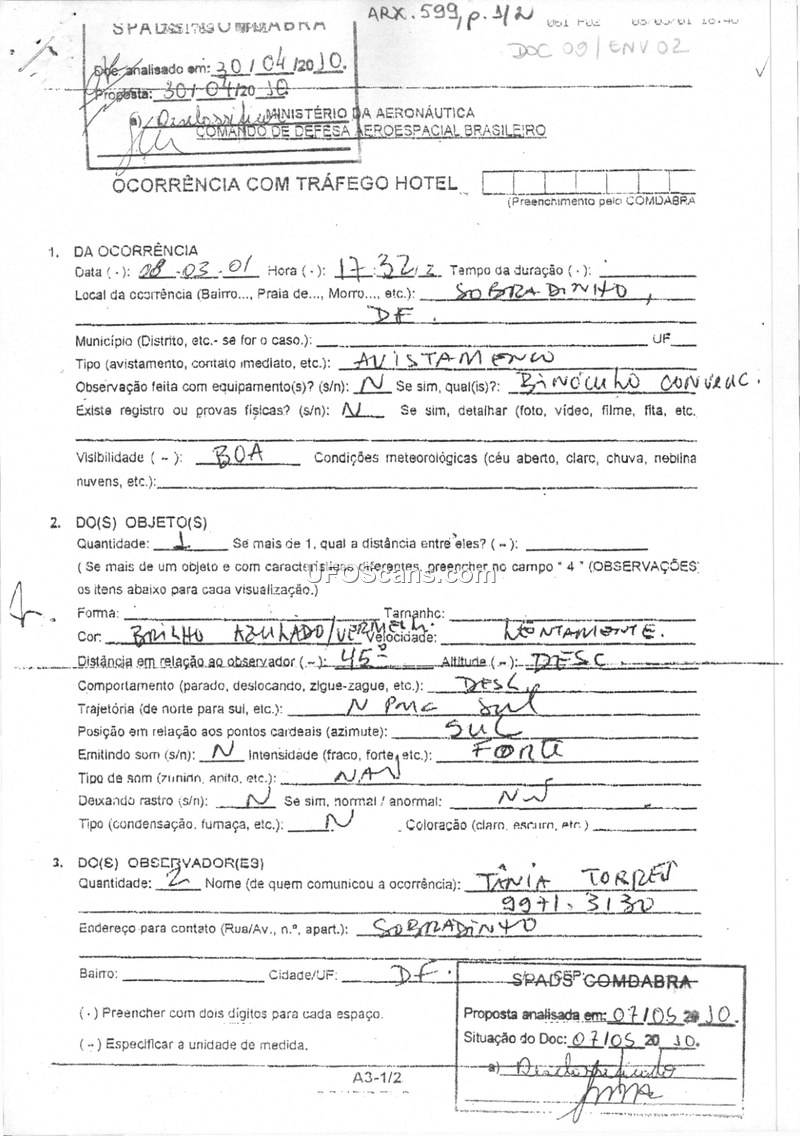 ARX. 599, p. 1/2
DOC 09/ENV 02
Doc. analisado em: 30/04/2010.
Proposta: 30/04/2010
a) Desclassificar
MINISTÉRIO DA AERONÁUTICA
COMANDO DE DEFESA AEROESPACIAL BRASILEIRO
OCORRÊNCIA COM TRÁFEGO HOTEL
(Preenchimento pelo COMDABRA
1. DA OCORRÊNCIA
Data ( · ): 08.03.01 Hora ( · ): 17:32 z Tempo da duração ( · ):
Local da ocorrência (Bairro..., Praia de..., Morro..., etc.): SOBRADINHO,
DF.
Município (Distrito, etc.- se for o caso.): UF
Tipo (avistamento, contato imediato, etc.): AVISTAMENTO
Observação feita com equipamento(s)? (s/n): N Se sim, qual(is)?: BINÓCULO CONVENC.
Existe registro ou provas físicas? (s/n): N Se sim, detalhar (foto, vídeo, filme, fita, etc.
Visibilidade ( ~ ): BOA Condições meteorológicas (céu aberto, claro, chuva, neblina
nuvens, etc.):
2. DO(S) OBJETO(S)
Quantidade: 1 Se mais de 1, qual a distância entre eles? ( ~ ):
( Se mais de um objeto e com características diferentes, preencher no campo " 4 " (OBSERVAÇÕES)
os itens abaixo para cada visualização.)
UFOScans.com
Forma: Tamanho:
Cor: BRILHO AZULADO/VERMELH. Velocidade: LENTAMENTE.
Distância em relação ao observador ( ~ ): 45° Altitude ( ~ ): DESC.
Comportamento (parado, deslocando, zigue-zague, etc.): DESL.
Trajetória (de norte para sul, etc.): N PARA SUL
Posição em relação aos pontos cardeais (azimute): SUL
Emitindo som (s/n): N Intensidade (fraco, forte, etc.): FORTE
Tipo de som (zunido, apito, etc.): NAN
Deixando rastro (s/n): N Se sim, normal / anormal:
Tipo (condensação, fumaça, etc.): N Coloração (claro, escuro, etc.)
3. DO(S) OBSERVADOR(ES)
Quantidade: 2 Nome (de quem comunicou a ocorrência): TÂNIA TORRES
9971.3130
Endereço para contato (Rua/Av., n.º, apart.): SOBRADINHO
Bairro: Cidade/UF: DF. CEP:
SPADS COMDABRA
( · ) Preencher com dois dígitos para cada espaço.
Proposta analisada em: 07/05/2010.
Situação do Doc: 07/05/2010.
( ~ ) Especificar a unidade de medida.
a) Desclassificado
A3-1/2